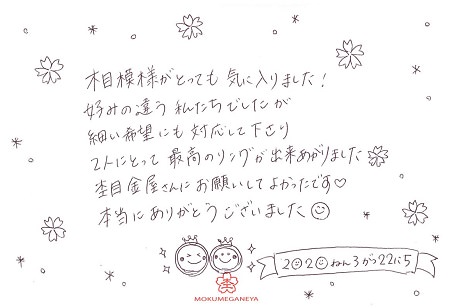 木目模様がとっても気に入りました!
好みの違う私たちでしたが
細い希望にも対応して下さり
2人にとって最高のリングが出来あがりました
杢目金屋さんにお願いしてよかったです♡
本当にありがとうございました
2020ねん3がつ22にち
杢
MOKUMEGANEYA